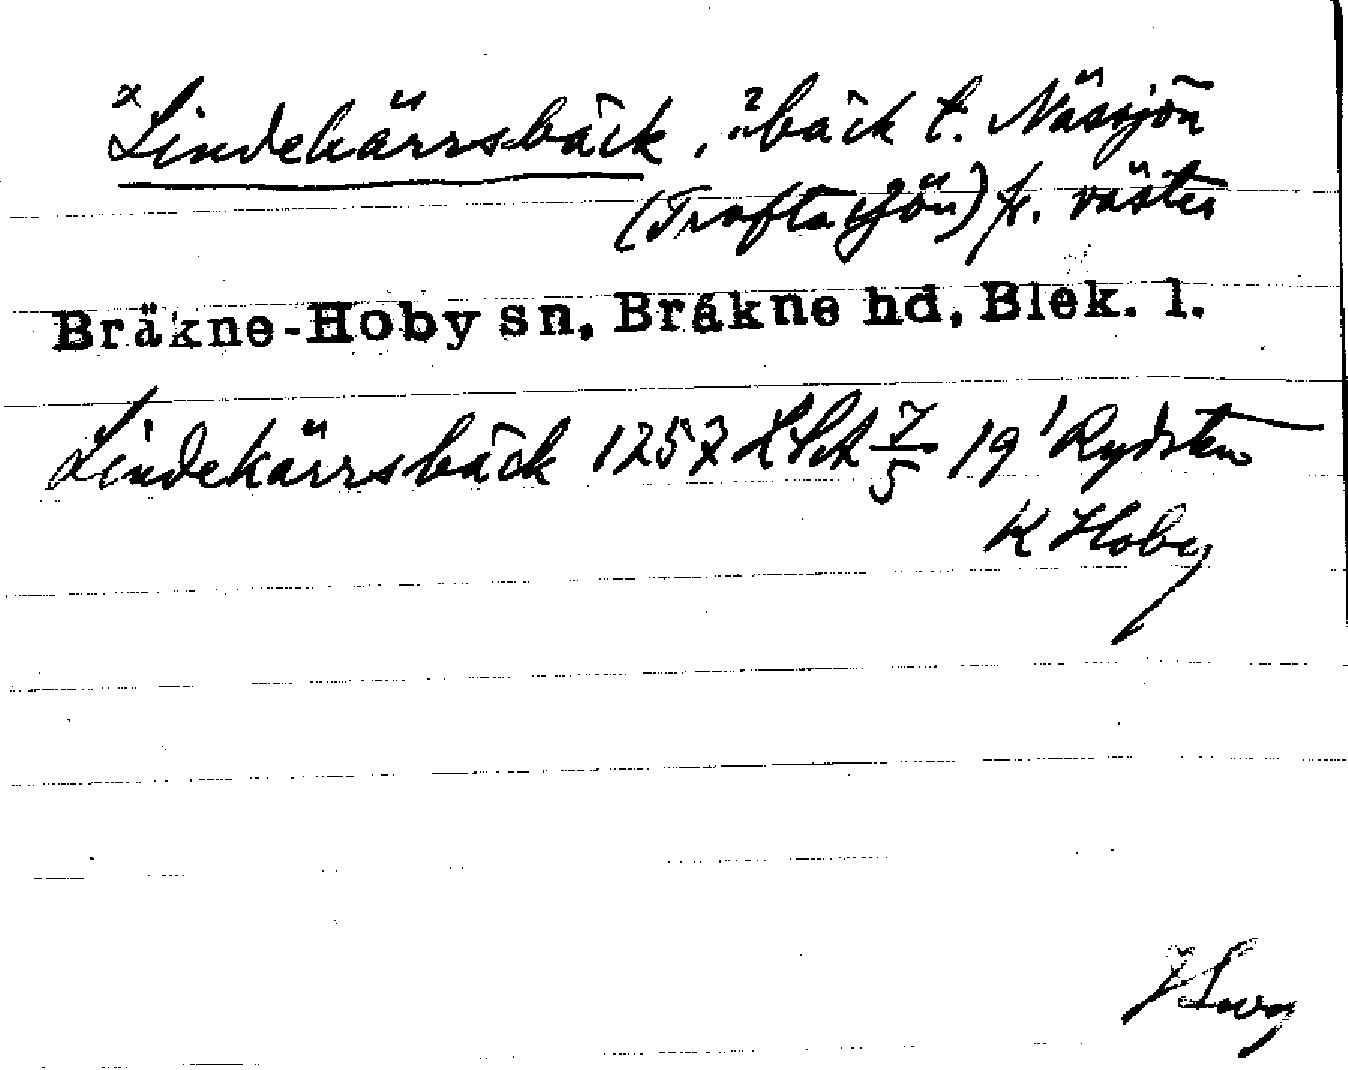 x Lindekärrsbäck, bäck t. Nässjön
(Troftasjön) fr. väster
Bräkne-Hoby sn, Bräkne hd, Blek. l.
Lindekärrsbäck 1257 7/5 19 Rydsten
K Hoby